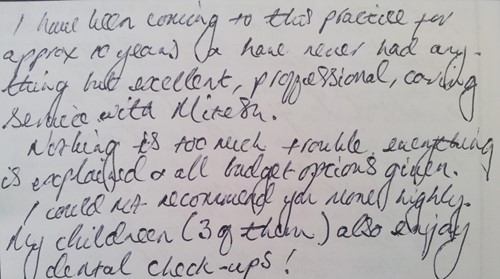 I have been coming to this practice for
approx 10 years & have never had any-
thing but excellent, professional, caring
service with Mitesh.
Nothing is too much trouble everything
is explained & all budget options given.
I could not recommend you more highly.
My children (3 of them) also enjoy
dental check-ups!